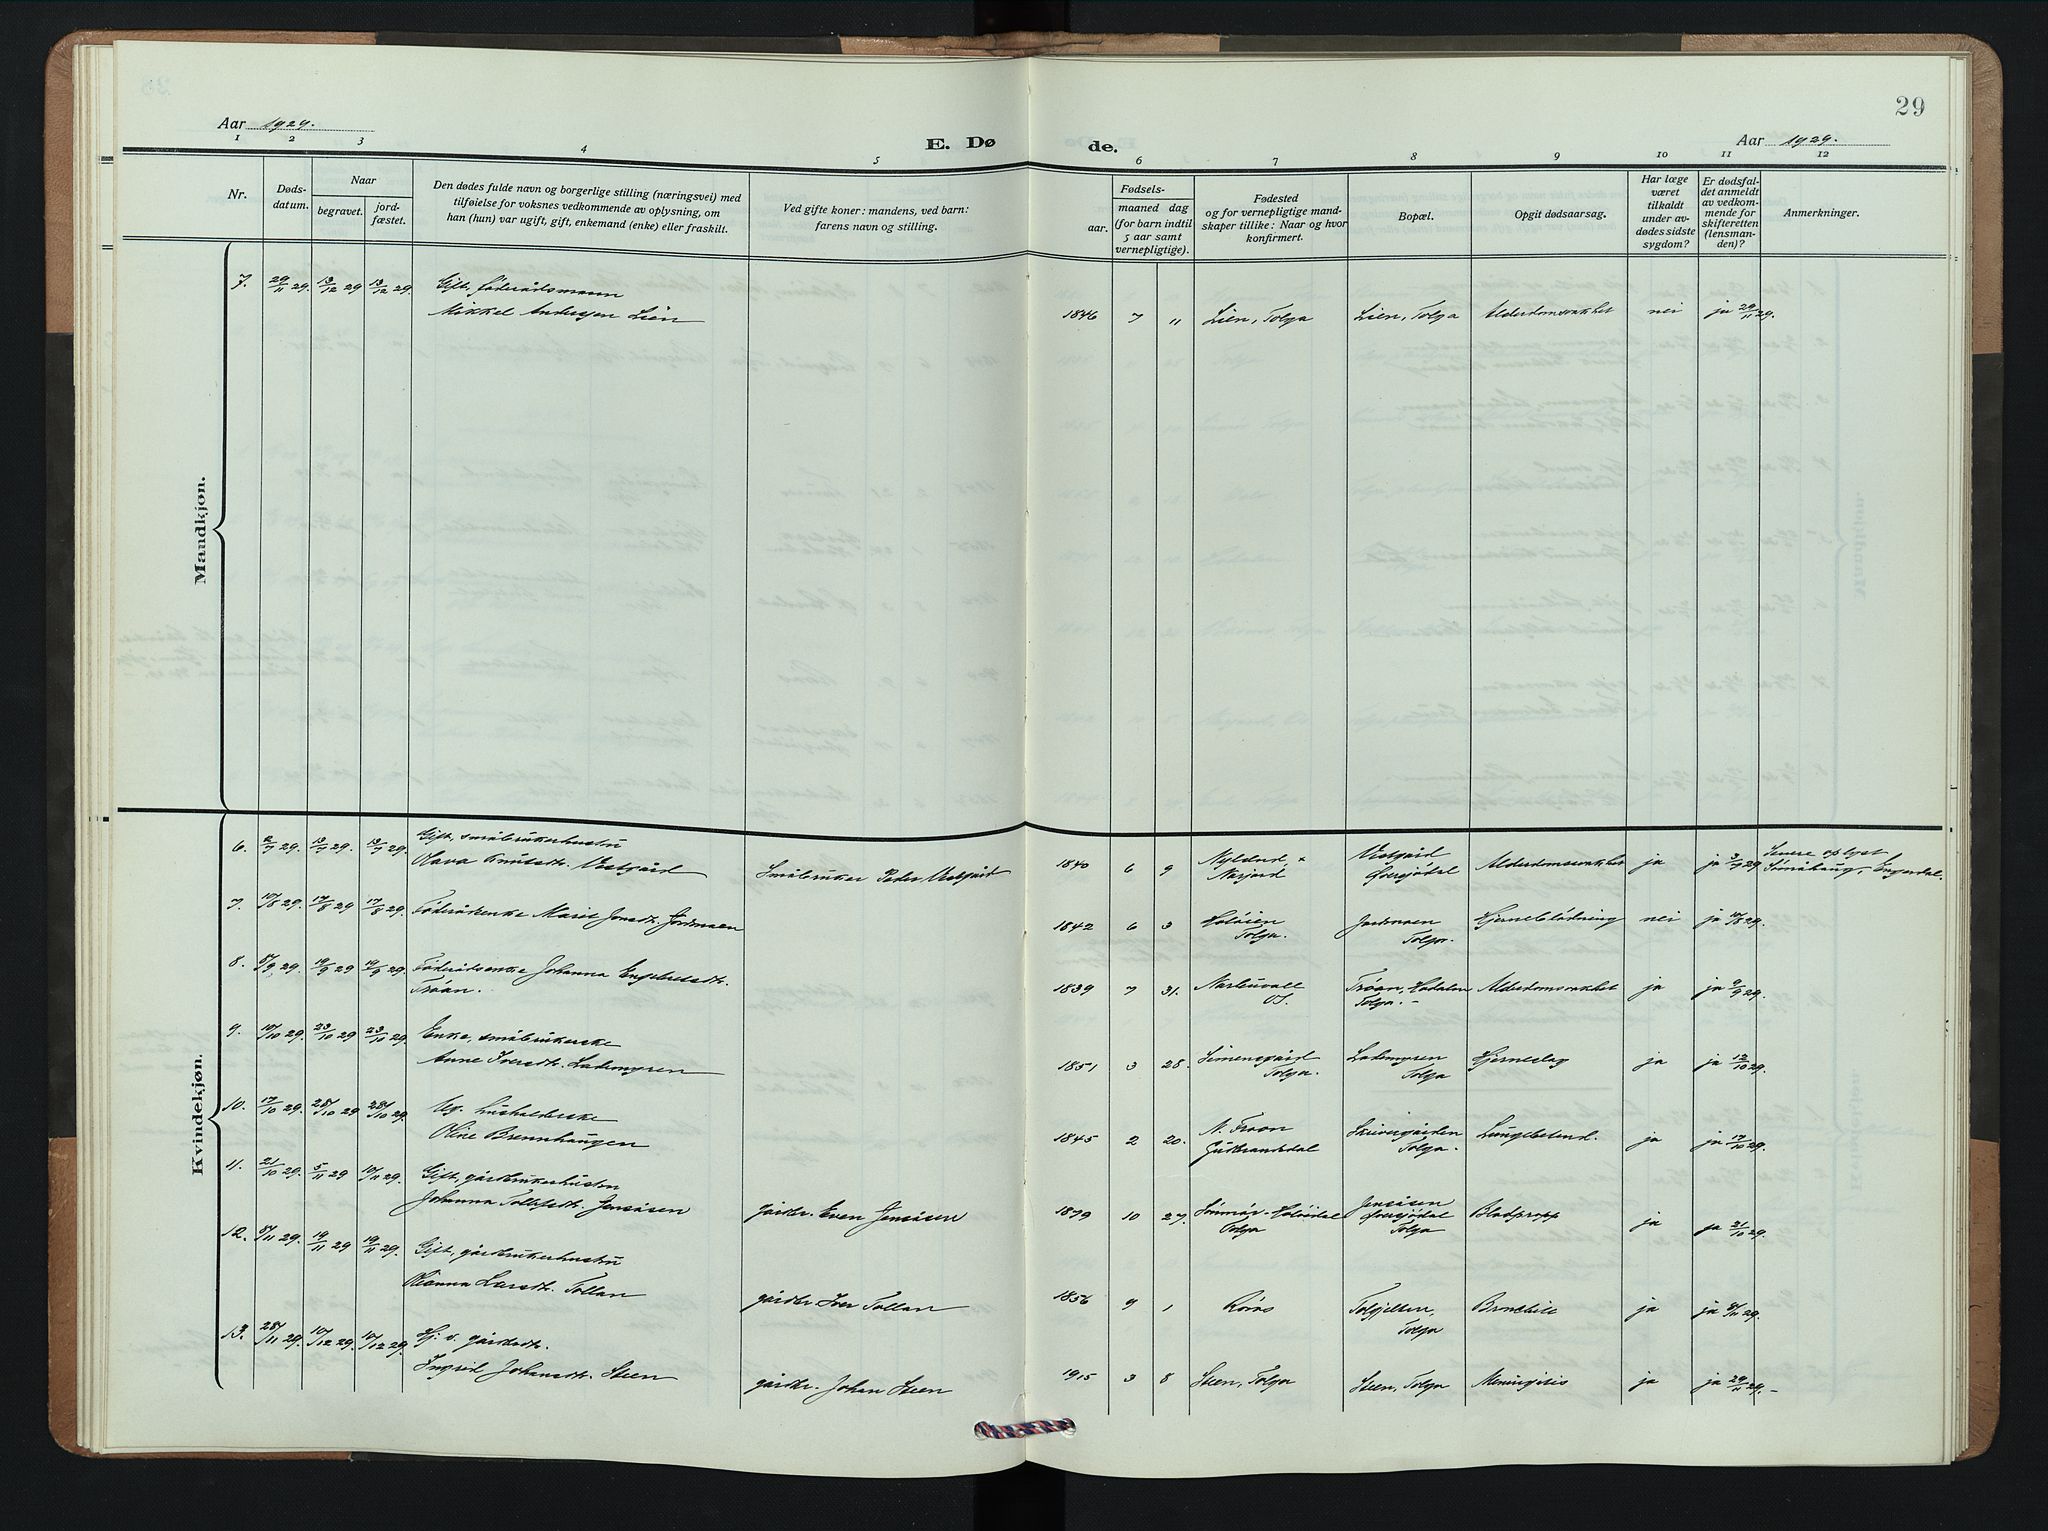 29
Aar 1929.
E. Dø de.
Aar 1929.
1 2 3 4 5 6 7 8 9 10 11 12
Nr.
Døds-
datum.
Naar
begravet.
jord-
fæstet.
Den dødes fulde navn og borgerlige stilling (næringsvei) med
tilføielse for voksnes vedkommende av oplysning, om
han (hun) var ugift, gift, enkemand (enke) eller fraskilt.
Ved gifte koner: mandens, ved barn:
farens navn og stilling.
Fødsels-
aar. maaned dag
(for barn indtil
5 aar samt
vernepligtige).
Fødested
og for vernepligtige mand-
skaper tillike: Naar og hvor
konfirmert.
Bopæl.
Opgit dødsaarsag.
Har læge
været
tilkaldt
under av-
dødes sidste
sygdom?
Er dødsfal-
det anmeldt
av vedkom-
mende for
skifteretten
(lensman-
den)?
Anmerkninger.
Mandkjøn.
7. 29/11 29. 13/12 29 13/12 29. Gift, föderådsmann
Mikkel Andersen Lien 1846 7 11 Lien, Tolga Lien, Tolga Alderdomssvakhet nei ja 29/11 29.
Kvindekjøn.
6. 2/7 29. 13/7 29. 13/7 29. Gift, småbrukerhustru
Olava Knutsdt. Vestgård Småbruker Peder Vestgård 1840 6 9 Nyløend, Narjord Vestgård Øversjødal Alderdomssvakhet ja ja 3/7 29. Senere oplyst Engerdal.
7. 10/8 29. 17/8 29 17/8 29. Föderådsenke Marit Jonsdt. Jordmoen 1842 6 3 Holöien Tolga. Jordmoen Tolga. Hjerneblödning nei ja 10/8 29.
8. 8/9 29. 19/9 29 19/9 29. Föderådsenke Johanna Engebretsdt.
Tröan. 1839 7 31. Narbuvoll Os. Tröan, Hodalen Tolga.- Alderdomssvakhet ja ja 9/9 29.
9. 10/10 29. 23/10 29 23/10 29. Enke, småbrukerske
Anne Iversdt. Lademyren 1851 3 28. Simensgård Tolga. Lademyren Tolga Hjerneslag ja ja 12/10 29.
10. 17/10 29. 28/10 29 28/10 29. Ug. husholderske
Oline Brennhaugen 1845 2 20. N. Fron Gudbrandsdal Skrivergården Tolga. Lungebetend. ja ja 17/10 29.
11. 21/10 29. 5/11 29 10/11 29. Gift, gårdbrukerhustru
Johanna Tollefsdt. Jensåsen gårdbr. Even Jensåsen 1879 10 27. Holöidal Tolga Jensåsen Øversjödal Tolga Blodpropp ja ja 21/10 29.
12. 8/11 29. 19/11 29 19/11 29. Gift, gårdbrukerhustru
Olianna Larsdt. Tollan gårdbr. Iver Tollan 1856 9 1 Röros Tolga Bronchitt ja ja 9/11 29.
13. 28/11 29. 10/12 29. 10/12 29. Hj. v. gårdbdt.
Ingrid Johansdt. Steen gårdbr. Johan Steen 1915 3 8 Steen, Tolga Steen, Tolga Meningitis ja ja 29/11 29.-